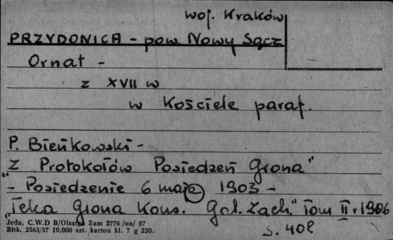 woj. Kraków
PRZYDONICA - pow. Nowy Sącz
Ornat -
z XVII w
w Kościele paraf.
P. Bieńkowski -
"Z Protokołów Posiedzeń Grona"
- Posiedzenie 6 maja 1903 -
"Teka Grona Kons. Gal. Zach." Tom II r 1906
s. 402
Jedn. C.W.D B/Olsztyn Zam 2776/on/57
Bltk. 2563/57 10.000 szt. karton kl. 7 g 220.